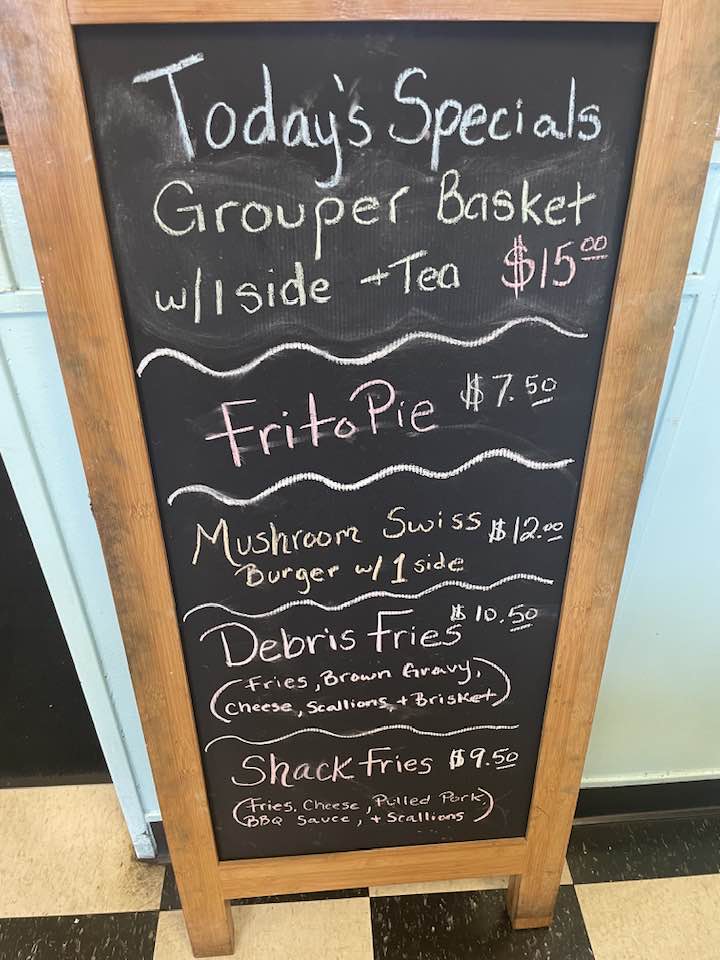 Today's Specials
Grouper Basket
w/1 side + Tea $15.00
Frito Pie $7.50
Mushroom Swiss $12.00
Burger w/ 1 side
Debris Fries $10.50
(Fries, Brown Gravy,
Cheese, Scallions, + Brisket)
Shack Fries $9.50
(Fries, Cheese, Pulled Pork,
BBQ Sauce, + Scallions)